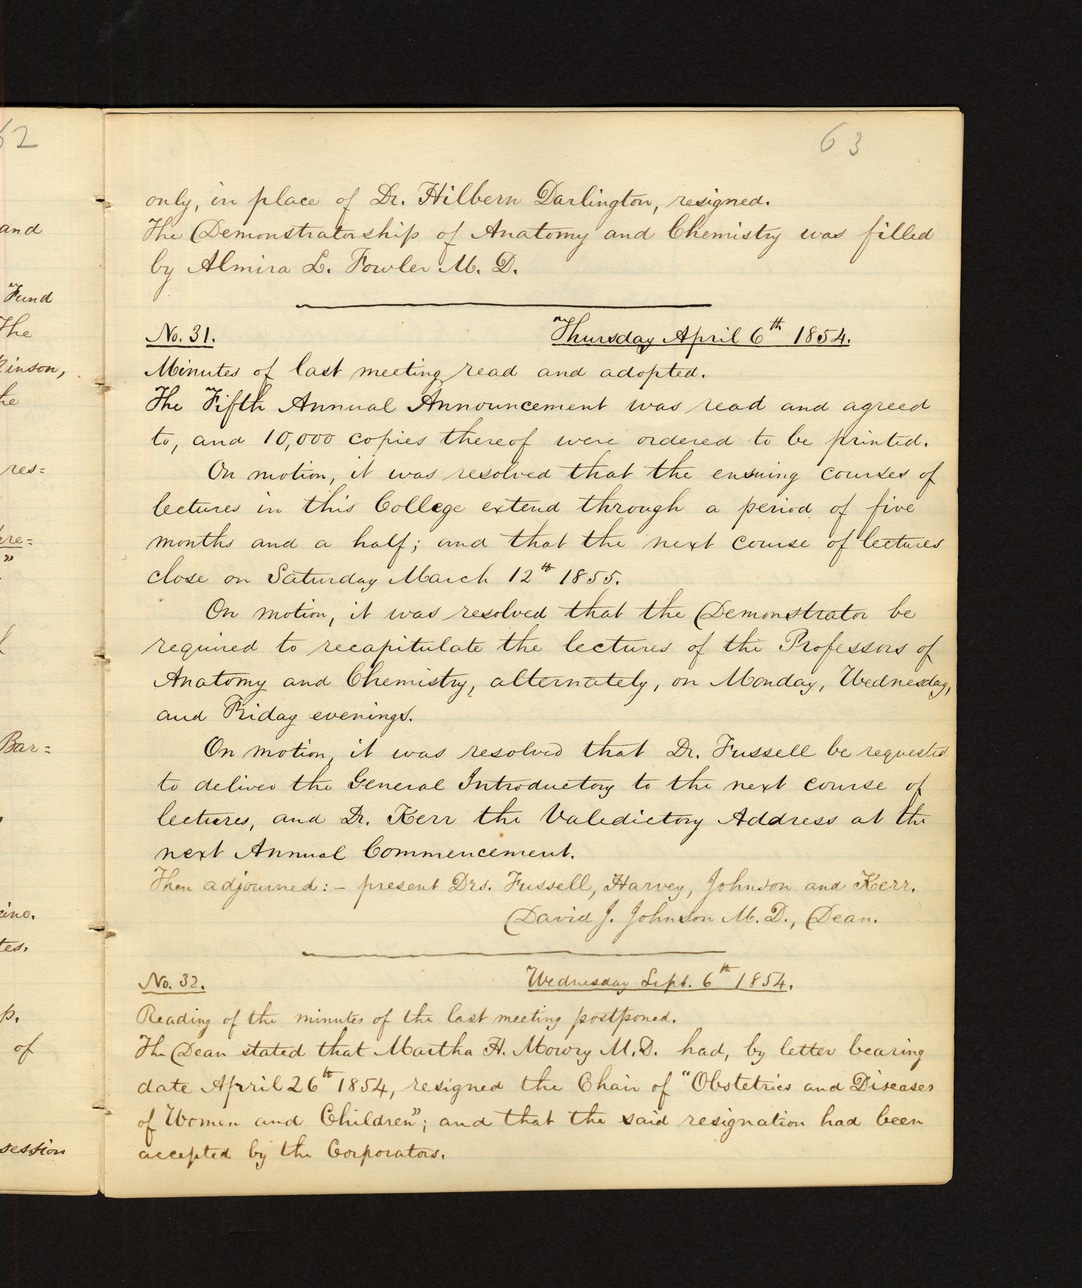 62
and
Fund
The
kinson,
he
res=
ure=
"
Bar=
cine.
tes.
p.
of
session
63
only, in place of Dr. Hilbern Darlington, resigned.
The Demonstratorship of Anatomy and Chemistry was filled
by Almira L. Fowler M. D.
No. 31. Thursday April 6th 1854.
Minutes of last meeting read and adopted.
The Fifth Annual Announcement was read and agreed
to, and 10,000 copies thereof were ordered to be printed.
On motion, it was resolved that the ensuing courses of
lectures in this College extend through a period of five
months and a half; and that the next course of lectures
close on Saturday March 12th 1855.
On motion, it was resolved that the Demonstrator be
required to recapitulate the lectures of the Professors of
Anatomy and Chemistry, alternately, on Monday, Wednesday,
and Friday evenings.
On motion, it was resolved that Dr. Fussell be requested
to deliver the General Introductory to the next course of
lectures, and Dr. Kerr the Valedictory Address at the
next Annual Commencement.
Then adjourned:- present Drs. Fussell, Harvey, Johnson and Kerr.
David J. Johnson M. D., Dean.
No. 32. Wednesday Sept. 6th 1854.
Reading of the minutes of the last meeting postponed.
The Dean stated that Martha H. Mowry M.D. had, by letter bearing
date April 26th 1854, resigned the Chair of "Obstetrics and Diseases
of Women and Children"; and that the said resignation had been
accepted by the Corporators.